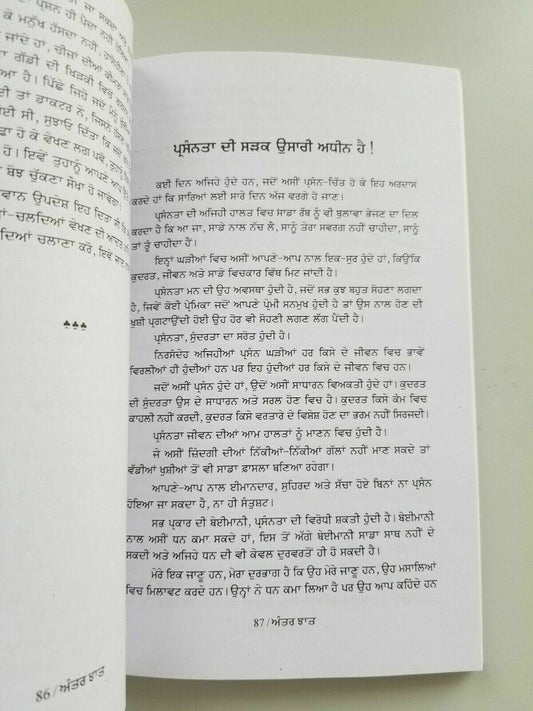 ਜਾ ਸਕਦਾ ਅਤੇ
ਪ੍ਰਸ਼ਨ ਹੀ ਪੈਦਾ ਨਹੀਂ ਹੁੰਦਾ
ਕੇ ਮਨੁੱਖ ਹੱਸਦਾ ਨਹੀਂ,
ਜਾਂਦੇ ਹਾਂ, ਚੀਜ਼ਾਂ ਦੀਆਂ
ਗੱਡੀ ਦੀ ਖਿੜਕੀ ਵਿਚੋਂ
ਆ ਹੈ। ਪਿੱਛੇ ਜਿਹੇ ਜਦੋਂ ਮੈਨੂੰ
ਈ ਤਾਂ ਡਾਕਟਰ ਨੇ, ਜਿਸਨੇ
ਈ ਸੀ, ਸੁਝਾਓ ਦਿੱਤਾ ਕਿ
ਹੋ ਕੇ ਵੇਖਣ ਲਗ ਪਵੋ,
ਹੋ। ਇਵੇਂ ਤੁਹਾਨੂੰ ਆਪਣੇ ਆਪ
ਬੋਝ ਚੁੱਕਣਾ ਸੌਖਾ ਹੋ ਜਾਵੇਗਾ।
ਵਾਨ ਉਪਦੇਸ਼ ਇਹ ਦਿੱਤਾ ਸੀ
-ਚਲਦਿਆਂ ਵੇਖਣ ਦੀ ਆਦਤ
ਦਿਆਂ ਚਲਾਣਾ ਕਰੋ, ਇਵੇਂ ਜਾਣ
♣♣♣
86 / ਅੰਤਰ ਝਾਤ
ਪ੍ਰਸੰਨਤਾ ਦੀ ਸੜਕ ਉਸਾਰੀ ਅਧੀਨ ਹੈ !
ਕਈ ਦਿਨ ਅਜਿਹੇ ਹੁੰਦੇ ਹਨ, ਜਦੋਂ ਅਸੀਂ ਪ੍ਰਸੰਨ-ਚਿੱਤ ਹੋ ਕੇ ਇਹ ਅਰਦਾਸ
ਕਰਦੇ ਹਾਂ ਕਿ ਸਾਰਿਆਂ ਲਈ ਸਾਰੇ ਦਿਨ ਅੱਜ ਵਰਗੇ ਹੋ ਜਾਣ।
ਪ੍ਰਸੰਨਤਾ ਦੀ ਅਜਿਹੀ ਹਾਲਤ ਵਿਚ ਸਾਡਾ ਰੱਬ ਨੂੰ ਵੀ ਬੁਲਾਵਾ ਭੇਜਣ ਦਾ ਦਿਲ
ਕਰਦਾ ਹੈ ਕਿ ਆ ਜਾ, ਸਾਡੇ ਨਾਲ ਨੱਚ ਲੈ, ਸਾਨੂੰ ਤੇਰਾ ਸਵਰਗ ਨਹੀਂ ਚਾਹੀਦਾ, ਸਾਨੂੰ
ਤਾਂ ਤੂੰ ਚਾਹੀਦਾ ਹੈਂ।
ਇਨ੍ਹਾਂ ਘੜੀਆਂ ਵਿਚ ਅਸੀਂ ਆਪਣੇ-ਆਪ ਨਾਲ ਇਕ-ਸੁਰ ਹੁੰਦੇ ਹਾਂ, ਕਿਉਂਕਿ
ਕੁਦਰਤ, ਜੀਵਨ ਅਤੇ ਸਾਡੇ ਵਿਚਕਾਰ ਵਿੱਥ ਮਿਟ ਜਾਂਦੀ ਹੈ।
ਪ੍ਰਸੰਨਤਾ ਮਨ ਦੀ ਉਹ ਅਵਸਥਾ ਹੁੰਦੀ ਹੈ, ਜਦੋਂ ਸਭ ਕੁਝ ਬਹੁਤ ਸੋਹਣਾ ਲਗਦਾ
ਹੈ, ਜਿਵੇਂ ਕੋਈ ਪ੍ਰੇਮਿਕਾ ਜਦੋਂ ਆਪਣੇ ਪ੍ਰੇਮੀ ਸਨਮੁਖ ਹੁੰਦੀ ਹੈ ਤਾਂ ਉਸ ਨਾਲ ਹੋਣ ਦੀ
ਖੁਸ਼ੀ ਪ੍ਰਗਟਾਉਂਦੀ ਹੋਈ ਉਹ ਹੋਰ ਵੀ ਸੋਹਣੀ ਲਗਣ ਲੱਗ ਪੈਂਦੀ ਹੈ।
ਪ੍ਰਸੰਨਤਾ, ਸੁੰਦਰਤਾ ਦਾ ਸਰੋਤ ਹੁੰਦੀ ਹੈ।
ਨਿਰਸੰਦੇਹ ਅਜਿਹੀਆਂ ਪ੍ਰਸੰਨ ਘੜੀਆਂ ਹਰ ਕਿਸੇ ਦੇ ਜੀਵਨ ਵਿਚ ਭਾਵੇਂ
ਵਿਰਲੀਆਂ ਹੀ ਹੁੰਦੀਆਂ ਹਨ ਪਰ ਇਹ ਹੁੰਦੀਆਂ ਹਰ ਕਿਸੇ ਦੇ ਜੀਵਨ ਵਿਚ ਹਨ।
ਜਦੋਂ ਅਸੀਂ ਪ੍ਰਸੰਨ ਹੁੰਦੇ ਹਾਂ, ਉਦੋਂ ਅਸੀਂ ਸਾਧਾਰਨ ਵਿਅਕਤੀ ਹੁੰਦੇ ਹਾਂ। ਕੁਦਰਤ
ਦੀ ਸੁੰਦਰਤਾ ਉਸ ਦੇ ਸਾਧਾਰਨ ਅਤੇ ਸਰਲ ਹੋਣ ਵਿਚ ਹੈ। ਕੁਦਰਤ ਕਿਸੇ ਕੰਮ ਵਿਚ
ਕਾਹਲੀ ਨਹੀਂ ਕਰਦੀ, ਕੁਦਰਤ ਕਿਸੇ ਵਰਤਾਰੇ ਦੇ ਵਿਸ਼ੇਸ਼ ਹੋਣ ਦਾ ਭਰਮ ਨਹੀਂ ਸਿਰਜਦੀ।
ਪ੍ਰਸੰਨਤਾ ਜੀਵਨ ਦੀਆਂ ਆਮ ਹਾਲਤਾਂ ਨੂੰ ਮਾਣਨ ਵਿਚ ਹੁੰਦੀ ਹੈ।
ਜੇ ਅਸੀਂ ਜ਼ਿੰਦਗੀ ਦੀਆਂ ਨਿੱਕੀਆਂ-ਨਿੱਕੀਆਂ ਗੱਲਾਂ ਨਹੀਂ ਮਾਣ ਸਕਦੇ ਤਾਂ
ਵੱਡੀਆਂ ਖੁਸ਼ੀਆਂ ਤੋਂ ਵੀ ਸਾਡਾ ਫ਼ਾਸਲਾ ਬਣਿਆ ਰਹੇਗਾ।
ਆਪਣੇ-ਆਪ ਨਾਲ ਈਮਾਨਦਾਰ, ਸੁਹਿਰਦ ਅਤੇ ਸੱਚਾ ਹੋਏ ਬਿਨਾਂ ਨਾ ਪ੍ਰਸੰਨ
ਹੋਇਆ ਜਾ ਸਕਦਾ ਹੈ, ਨਾ ਹੀ ਸੰਤੁਸ਼ਟ।
ਸਭ ਪ੍ਰਕਾਰ ਦੀ ਬੇਈਮਾਨੀ, ਪ੍ਰਸੰਨਤਾ ਦੀ ਵਿਰੋਧੀ ਸ਼ਕਤੀ ਹੁੰਦੀ ਹੈ। ਬੇਈਮਾਨੀ
ਨਾਲ ਅਸੀਂ ਧਨ ਕਮਾ ਸਕਦੇ ਹਾਂ, ਇਸ ਤੋਂ ਅੱਗੇ ਬੇਈਮਾਨੀ ਸਾਡਾ ਸਾਥ ਨਹੀਂ ਦੇ
ਸਕਦੀ ਅਤੇ ਅਜਿਹੇ ਧਨ ਦੀ ਵੀ ਕੇਵਲ ਦੁਰਵਰਤੋਂ ਹੀ ਹੋ ਸਕਦੀ ਹੈ।
ਮੇਰੇ ਇਕ ਜਾਣੂ ਹਨ, ਮੇਰਾ ਦੁਰਭਾਗ ਹੈ ਕਿ ਉਹ ਮੇਰੇ ਜਾਣੂ ਹਨ, ਉਹ ਮਸਾਲਿਆਂ
ਵਿਚ ਮਿਲਾਵਟ ਕਰਦੇ ਹਨ। ਉਨ੍ਹਾਂ ਨੇ ਧਨ ਕਮਾ ਲਿਆ ਹੈ ਪਰ ਉਹ ਆਪ ਕਹਿੰਦੇ ਹਨ
87 / ਅੰਤਰ ਝਾਤ